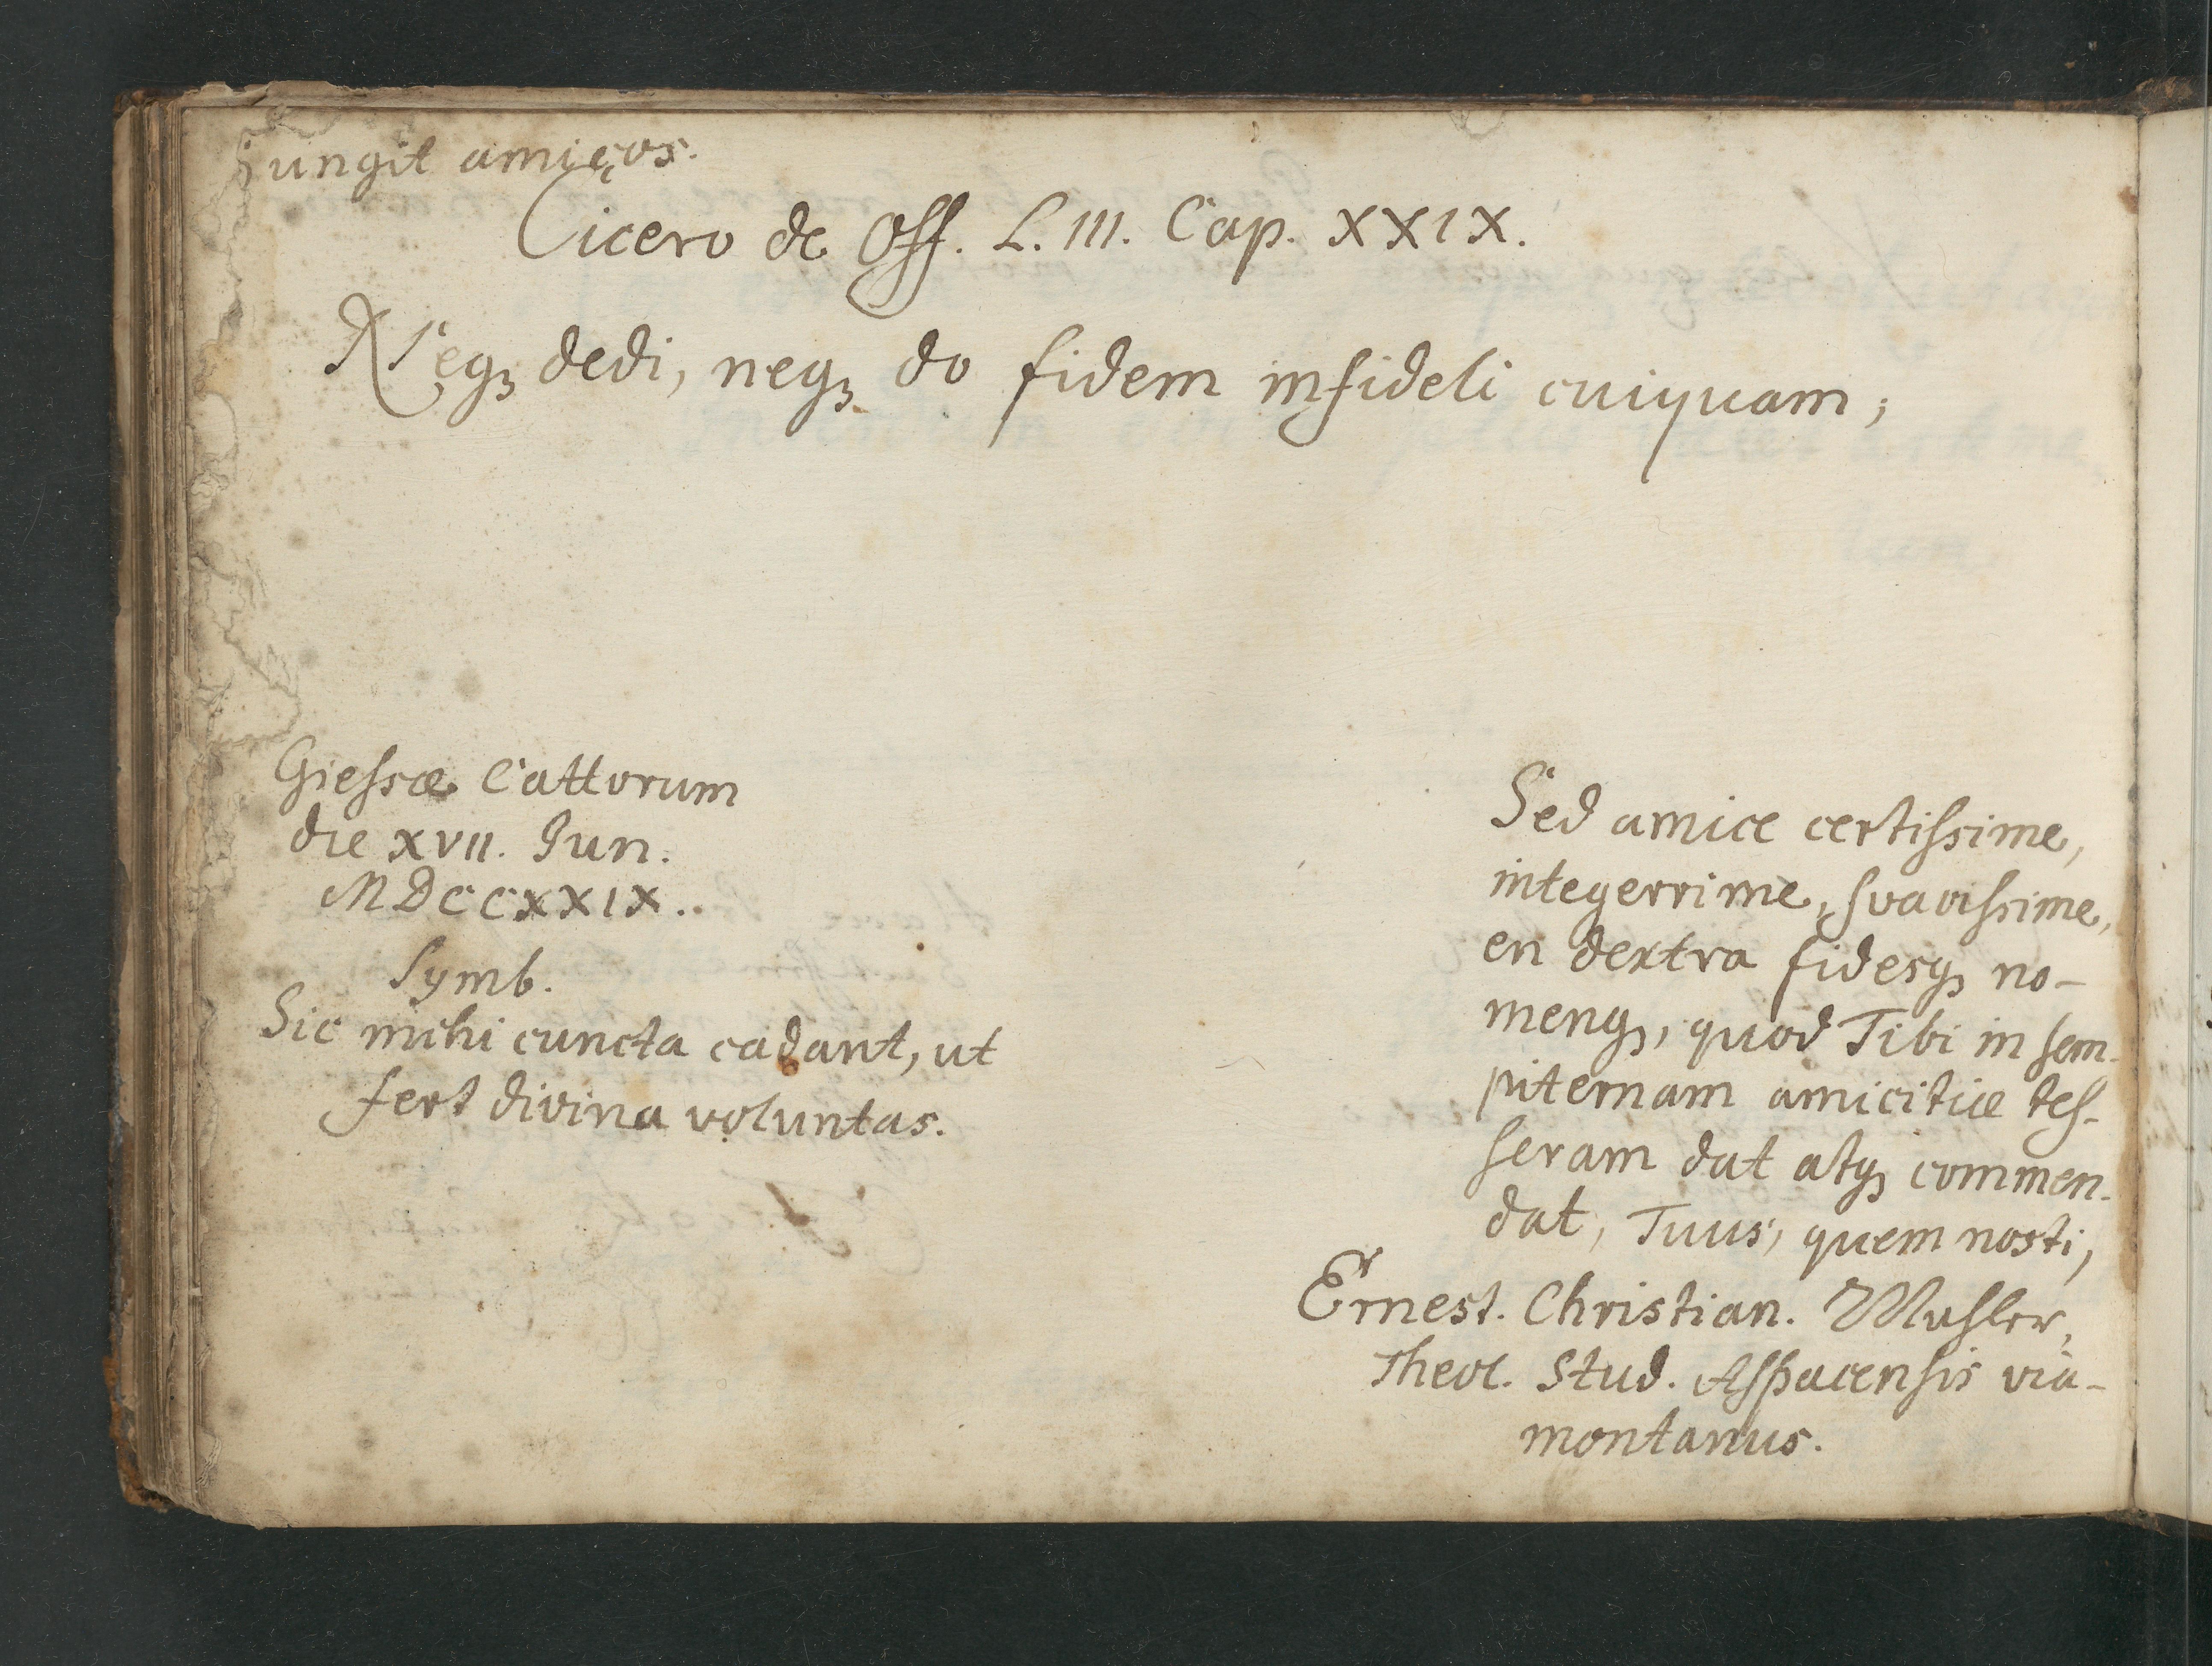 jungit amicos.
Cicero de Off. L. III. Cap. XXIX.
Neqꝫ dedi, neqꝫ do fidem infideli cuiquam;
Giessæ Cattorum
die XVII. Jun.
MDCCXXIX.
Symb.
Sic mihi cuncta cadant, ut
fert divina voluntas.
Sed amice certissime,
integerrime, svavissime,
en dextra fidesqꝫ no-
menqꝫ, quod Tibi in sem-
piternam amicitiæ tes-
seram dat atqꝫ commen-
dat, Tuus, quem nosti,
Ernest. Christian.
Theol. Stud. Aspacensis via-
montanus.